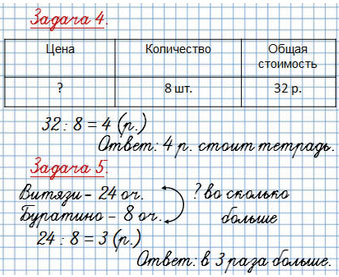 Задача 4.
Цена Количество Общая стоимость
? 8 шт. 32 р.
32 : 8 = 4 (р.)
Ответ: 4 р. стоит тетрадь.
Задача 5.
Витязи – 24 оч. ? во сколько
Буратино – 8 оч. больше
24 : 8 = 3 (р.)
Ответ: в 3 раза больше.